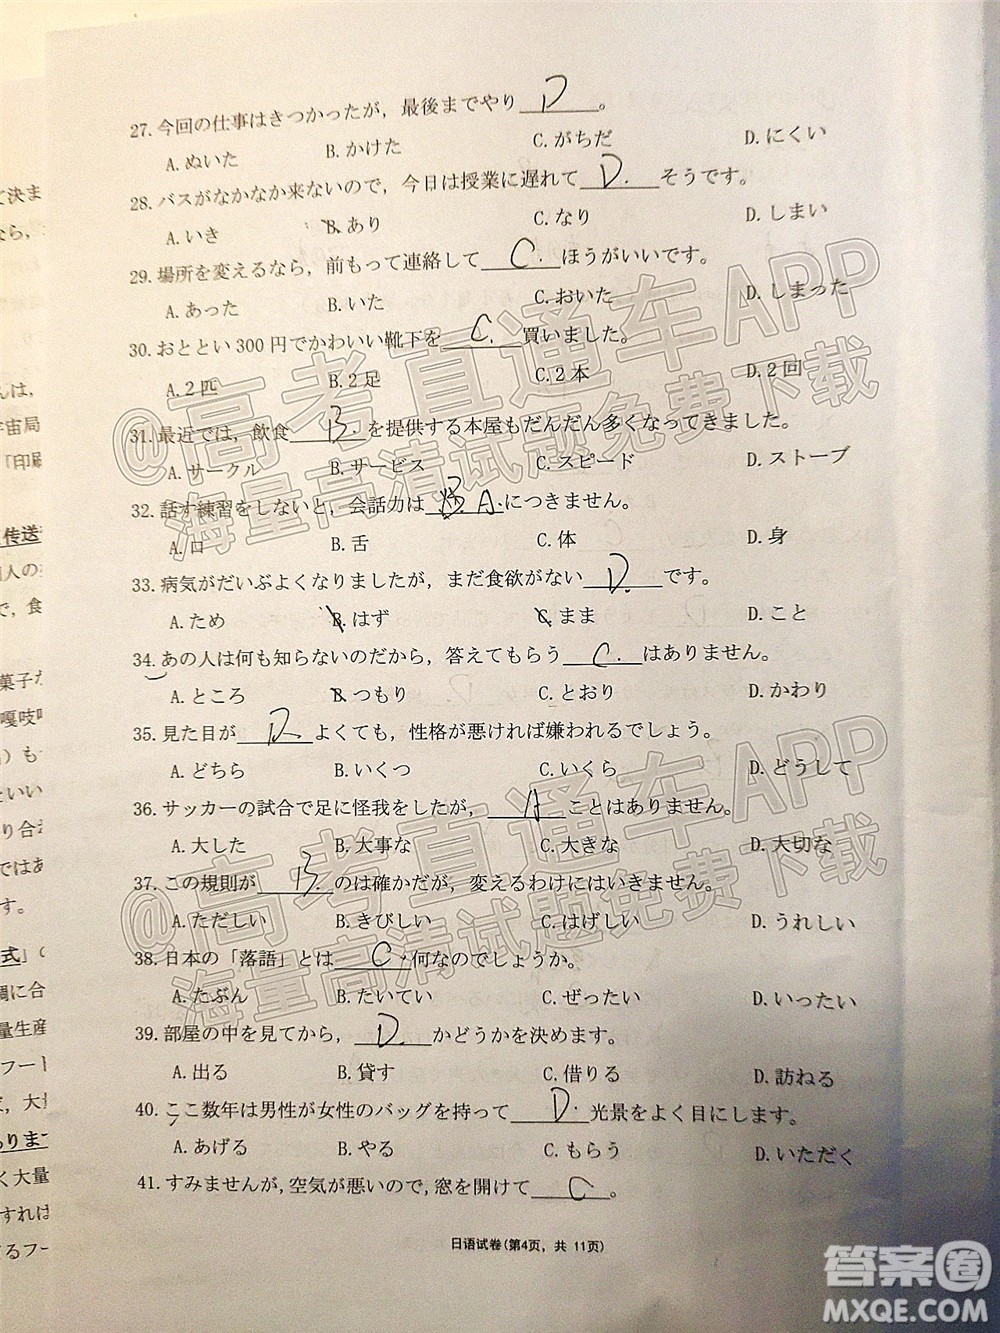 27. 今回の仕事はきつかったが，最後までやり D 。
A. ぬいた B. かけた C. がちだ D. にくい
28. バスがなかなか来ないので，今日は授業に遅れて D. そうです。
A. いき B. あり C. なり D. しまい
29. 場所を変えるなら，前もって連絡して C. ほうがいいです。
A. あった B. いた C. おいた D. しまった
30. おととい 300 円でかわいい靴下を C. 買いました。
A. 2 匹 B. 2 足 C. 2 本 D. 2 回
31. 最近では，飲食 B. を提供する本屋もだんだん多くなってきました。
A. サークル B. サービス C. スピード D. ストーブ
32. 話す練習をしないと，会話力は A. につきません。
A. 口 B. 舌 C. 体 D. 身
33. 病気がだいぶよくなりましたが，まだ食欲がない D. です。
A. ため B. はず C. まま D. こと
34. あの人は何も知らないのだから，答えてもらう C. はありません。
A. ところ B. つもり C. とおり D. かわり
35. 見た目が D. よくても，性格が悪ければ嫌われるでしょう。
A. どちら B. いくつ C. いくら D. どうして
36. サッカーの試合で足に怪我をしたが， A ことはありません。
A. 大した B. 大事な C. 大きな D. 大切な
37. この規則が B. のは確かだが，変えるわけにはいきません。
A. ただしい B. きびしい C. はげしい D. うれしい
38. 日本の「落語」とは C. 何なのでしょうか。
A. たぶん B. たいてい C. ぜったい D. いったい
39. 部屋の中を見てから， D. かどうかを決めます。
A. 出る B. 貸す C. 借りる D. 訪ねる
40. ここ数年は男性が女性のバッグを持って D. 光景をよく目にします。
A. あげる B. やる C. もらう D. いただく
41. すみませんが, 空気が悪いので, 窓を開けて C 。
日语试卷(第4页，共 11页)
@高考直通车APP
海量高清试题免费下载
@高考直通车APP
海量高清试题免费下载
答案圈
MXQE.COM